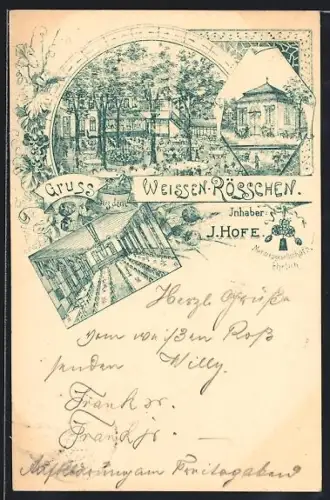 Gruss
aus dem
WEISSEN-RÖSSCHEN.
Inhaber
J. HOFE.
Herzl Grüße
vom weißen Roß
senden Willy
Frank sr.
Frank jr.
Aufklärung am Freitagabend